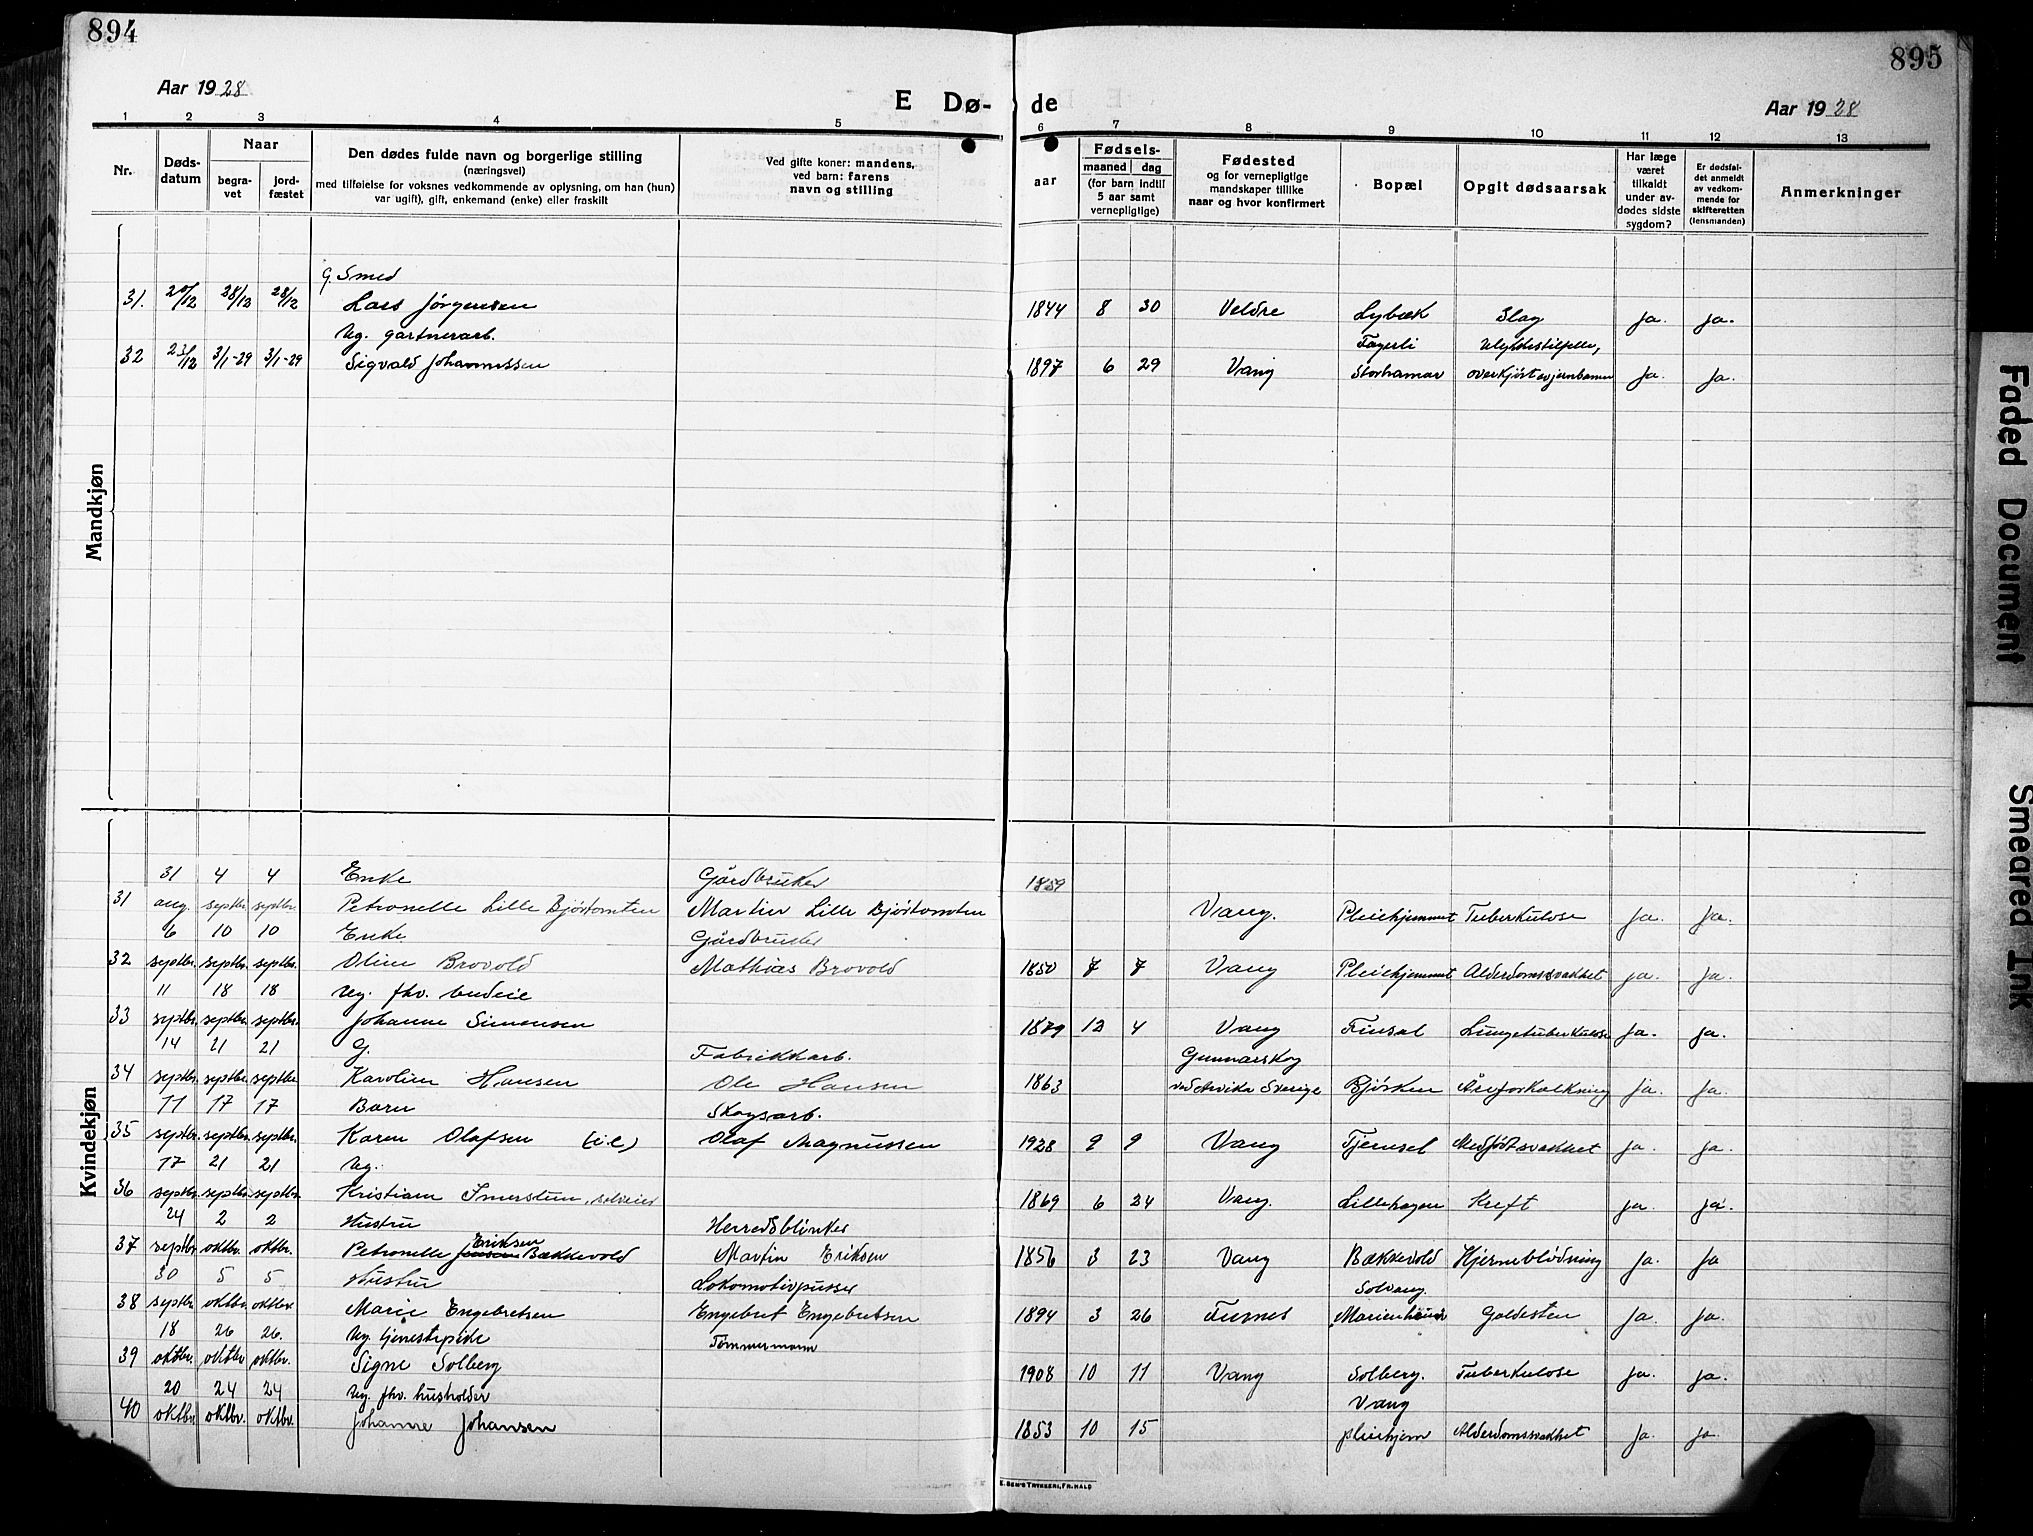 894
895
Aar 1928
E Dø-de
Aar 1928
1 2 3 4 5 6 7 8 9 10 11 12 13
Nr.
Døds-
datum
Naar
begra-
vet
jord-
fæstet
Den dødes fulde navn og borgerlige stilling
(næringsvei)
med tilføielse for voksnes vedkommende av oplysning, om han (hun)
var ugift), gift, enkemand (enke) eller fraskilt
Ved gifte koner: mandens,
ved barn: farens
navn og stilling
aar
Fødsels-
maaned dag
(for barn indtil
5 aar samt
vernepligtige)
Fødested
og for vernepligtige
mandskaper tillike
naar og hvor konfirmert
Bopæl
Opgit dødsaarsak
Har læge
været
tilkaldt
under av-
dødes sidste
sygdom?
Er dødsfal-
det anmeldt
av vedkom-
mende for
skifteretten
(lensmanden)
Anmerkninger
Mandkjøn
G. Smed
31. 20/12 28/12 28/12 Lars Jørgensen 1844 8 30 Veldre Lybæk Slag ja. ja.
Ug. gartnerarb. Fagerli Ulykkestilfelle,
32 23/12 3/1-29 3/1-29 Sigvald Johannessen 1897 6 29 Vang Storhamar overkjørt av jernbanen ja. ja.
Kvindekjøn
31 4 4 Enke Gårdbruker 1859
31 aug. septbr. septbr. Petronelle Lille Bjørtomten Martin Lille Bjørtomten Vang. Pleiehjemmet Tuberkulose ja. ja.
6 10 10 Enke Gårdbruker
32 septbr. septbr. septbr. Oline Brovold Mathias Brovold 1850 7 7 Vang Pleiehjemmet Alderdomssvakhet ja. ja.
11 18 18 Ug. fhv. budeie
33 septbr. septbr. septbr. Johanne Simensen 1879 12 4 Vang Finsal Lungetuberkulose ja. ja.
14 21 21 G. Fabrikkarb. Gunnarskog
34 septbr. septbr. septbr. Karoline Hansen Ole Hansen 1863 ved Arvika Sverige Bjørken Åreforkalkning ja. ja.
11 17 17 Barn Skogsarb.
35 septbr. septbr. septbr. Karen Olafsen Olaf Magnussen 1928 9 9 Vang Tjernsel Medfødt svakhet ja ja.
17 21 21 Ug.
36 septbr. septbr. septbr. Kristiane Imerslun, selveier 1869 6 24 Vang. Lillehagen Kreft ja. ja.
24 2 2 Hustru Herredsblinker
37 septbr. oktbr. oktbr. Petronelle Jensen Eriksen Bækkevold Martin Eriksen 1856 3 23 Vang Bækkevold Hjerneblødning ja. ja
30 5 5 Hustru Lokomotivpusser Solvang
38 septbr. oktbr. oktbr. Marie Engebretsen Engebret Engebretsen 1894 3 26 Furnes Marienhaug Galdesten ja. ja
18 26 26. Ug. tjenestepike Tømmermann
39 oktbr. oktbr. oktbr. Signe Solberg 1908 10 11 Vang Solberg. Tuberkulose ja. ja.
20 24 24 Ug. fhv. husholder Vang
40 oktbr. oktbr. oktbr. Johanne Johansen 1853 10 15 pleiehjem Alderdomssvakhet ja. ja.
Faded Document
Smeared Ink